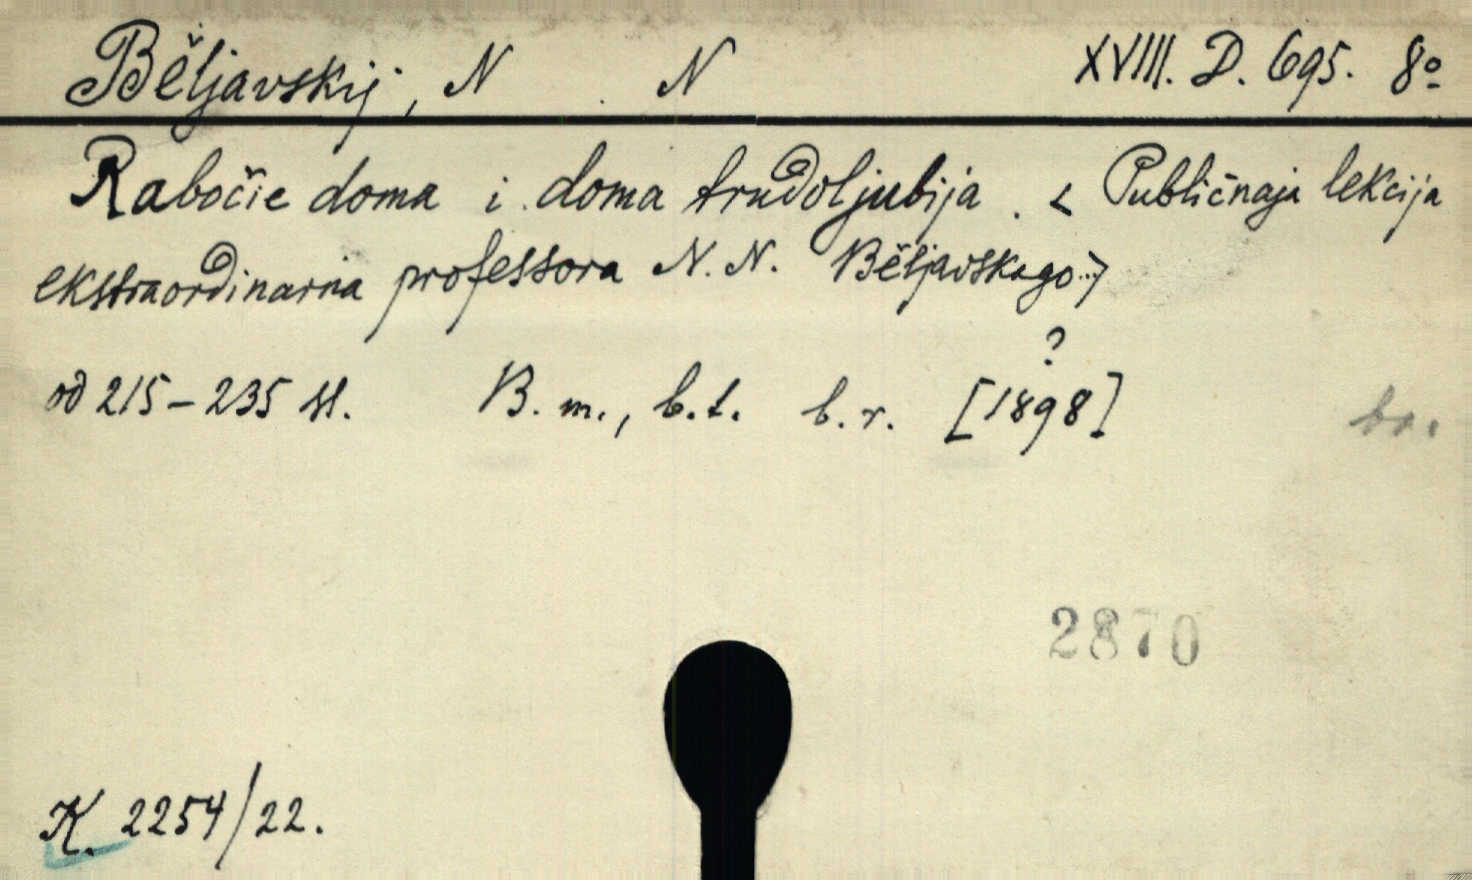 Běljavskij, N . N XVIII. D. 695. 8º
Rabočie doma i doma trudoljubija. < Publičnaja lekcija
ekstraordinarna professora N. N. Běljavskago.>
od 215-235 st. B. m., b. t. b. r. [1898]
?
br.
2870
K. 2254/22.